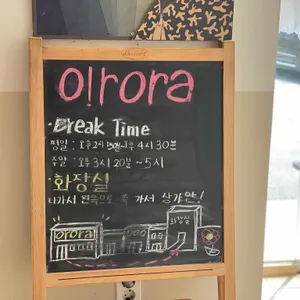 o!rora
·Break Time
평일 : 오후 2시 50분~오후 4시 30분
주말 : 오후 3시 20분~5시
·화장실
나가서 왼쪽으로 쭉 가서 상가안!
orora
화장실